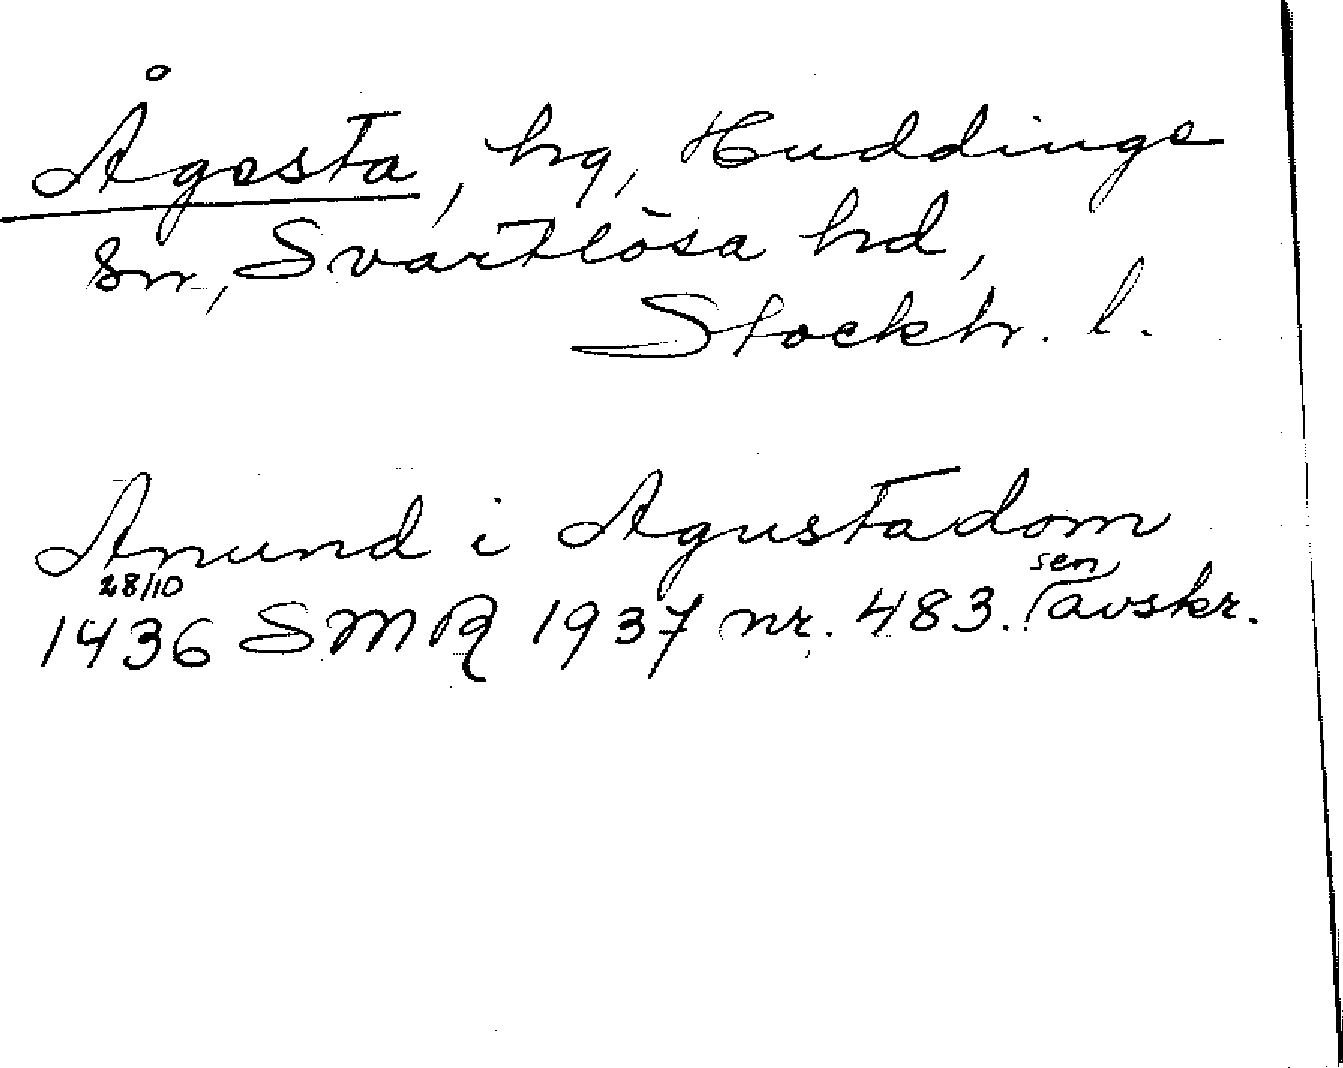 Ågesta, hg, Huddinge
sn, Svartlösa hd,
Stockh. l.
Anund i Agustadom
28/10 sen
1436 SMR 1937 nr. 483. avskr.